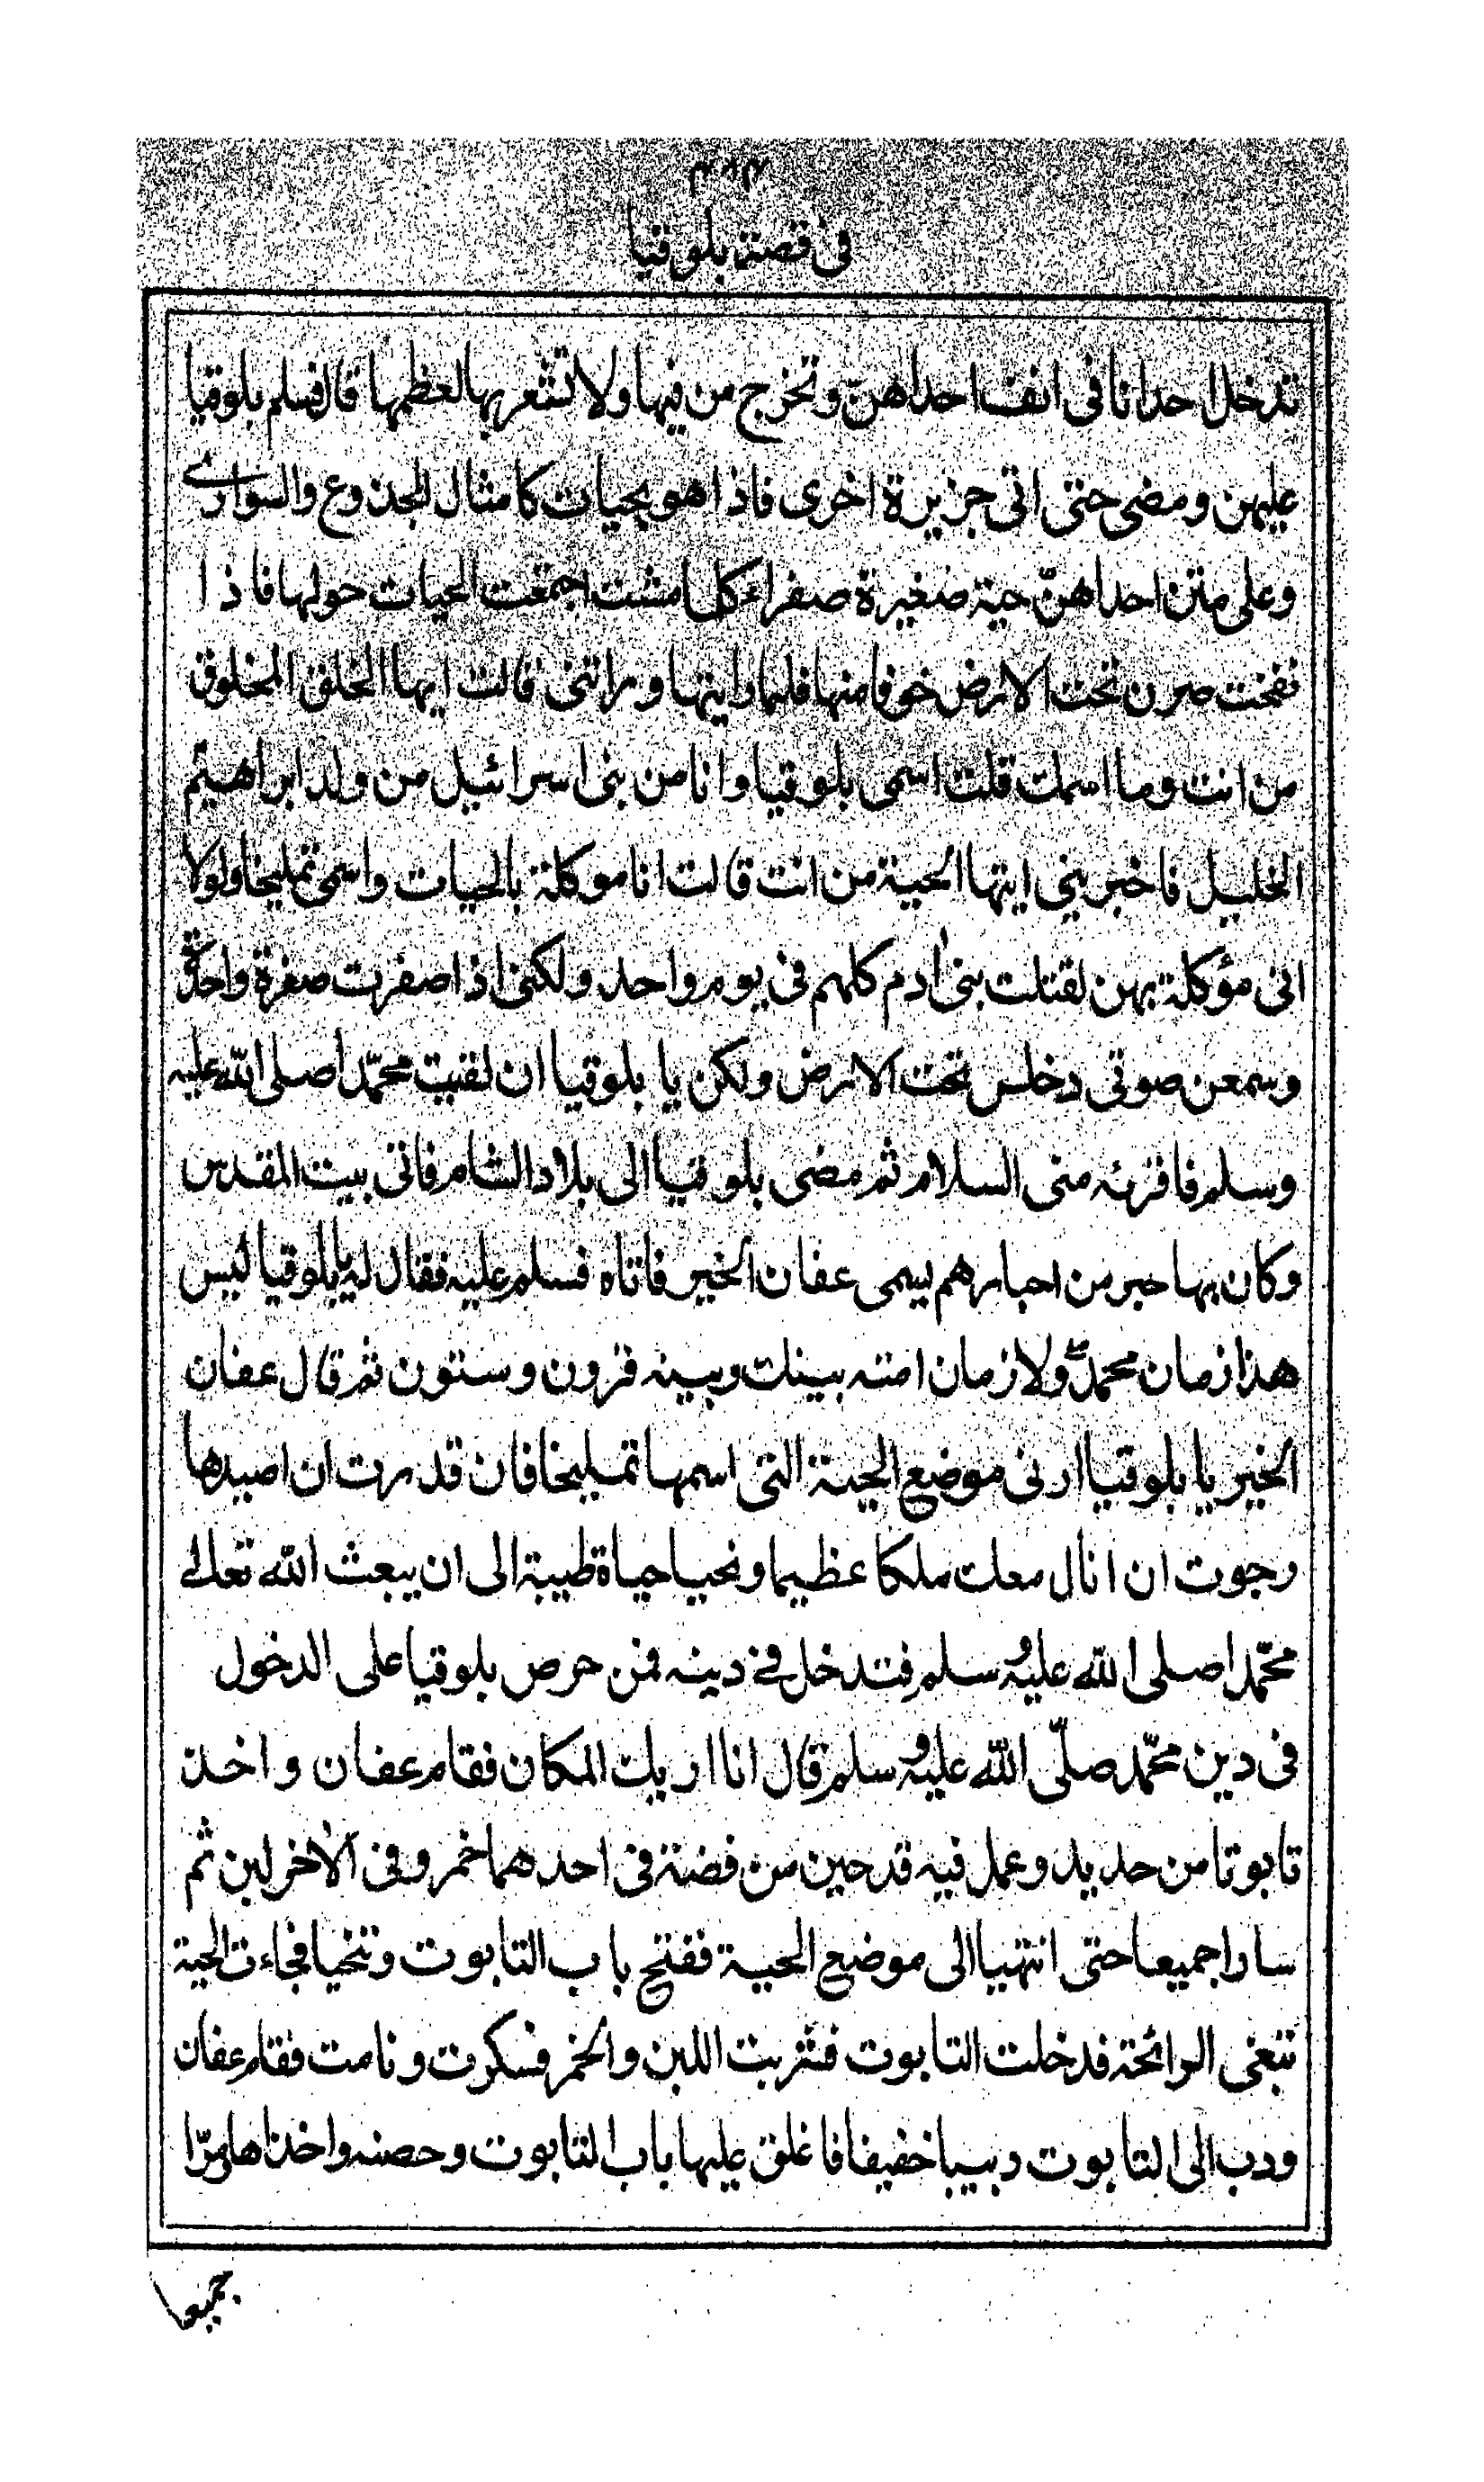 فى قصة بلوقيا
تدخل احدانا فى انف احداهنّ وتخرج من فيها ولا تشعر بها لعظمها قال فسلم بلوقيا
عليهن ومضى حتى اتى جزيرة اخرى فاذا هو بحيات كامثال الجذوع والسوارے
وعلى متن احداهنّ حية صغيرة صفراء كلما مشت اجتمعت الحيات حولها فاذا
نفخت صرن تحت الارض خوفا منها فلما رايتها وراتنى قالت ايها الخلق المخلوق
من انت وما اسمك قلت اسمى بلوقيا وانا من بنى اسرائيل من ولد ابراهيم
الخليل فاخبرينى ايتها الحية من انت قالت انا موكلة بالحيات واسمى تمليخا ولولا
انى مؤكلة بهن لقتلت بنى اٰدم كلهم فى يوم واحد ولكنى اذا صفرت صفرة واحدة
وسمعن صوتى دخلن تحت الارض ولكن يا بلوقيا ان لقيت محمّدا صلى اللّه عليه
وسلم فاقرئه منى السلام ثم مضى بلوقيا الى بلاد الشام فاتى بيت المقدس
وكان بها حبر من احبارهم يسمى عفان الخير فاتاه فسلم عليه فقال له يا بلوقيا ليس
هذا زمان محمدؐ ولا زمان امته بينك وبينه قرون وسنون ثم قال عفان
الخير يا بلوقيا ارنى موضع الحية التى اسمها تمليخا فان قدرت ان اصيدها
رجوت ان انال معك ملكا عظيما ونحيا حياة طيبة الى ان يبعث اللّه تعالے
محمّدا صلى اللّه عليه وسلم فندخل فے دينه فمن حرص بلوقيا على الدخول
فى دين محمّد صلّى اللّه عليه وسلم قال انا اريك المكان فقام عفان واخذ
تابوتا من حديد وعمل فيه قدحين من فضة فى احدهما خمر وفى الاٰخر لبن ثم
سارا جميعا حتى انتهيا الى موضع الحية ففتح باب التابوت وتنحيا فجاءت الحية
تبغى الرائحة فدخلت التابوت فشربت اللبن والخمر فسكرت ونامت فقام عفان
ودب الى التابوت دبيبا خفيفا فاغلق عليها باب التابوت وحصنه واخذاها ومرّا